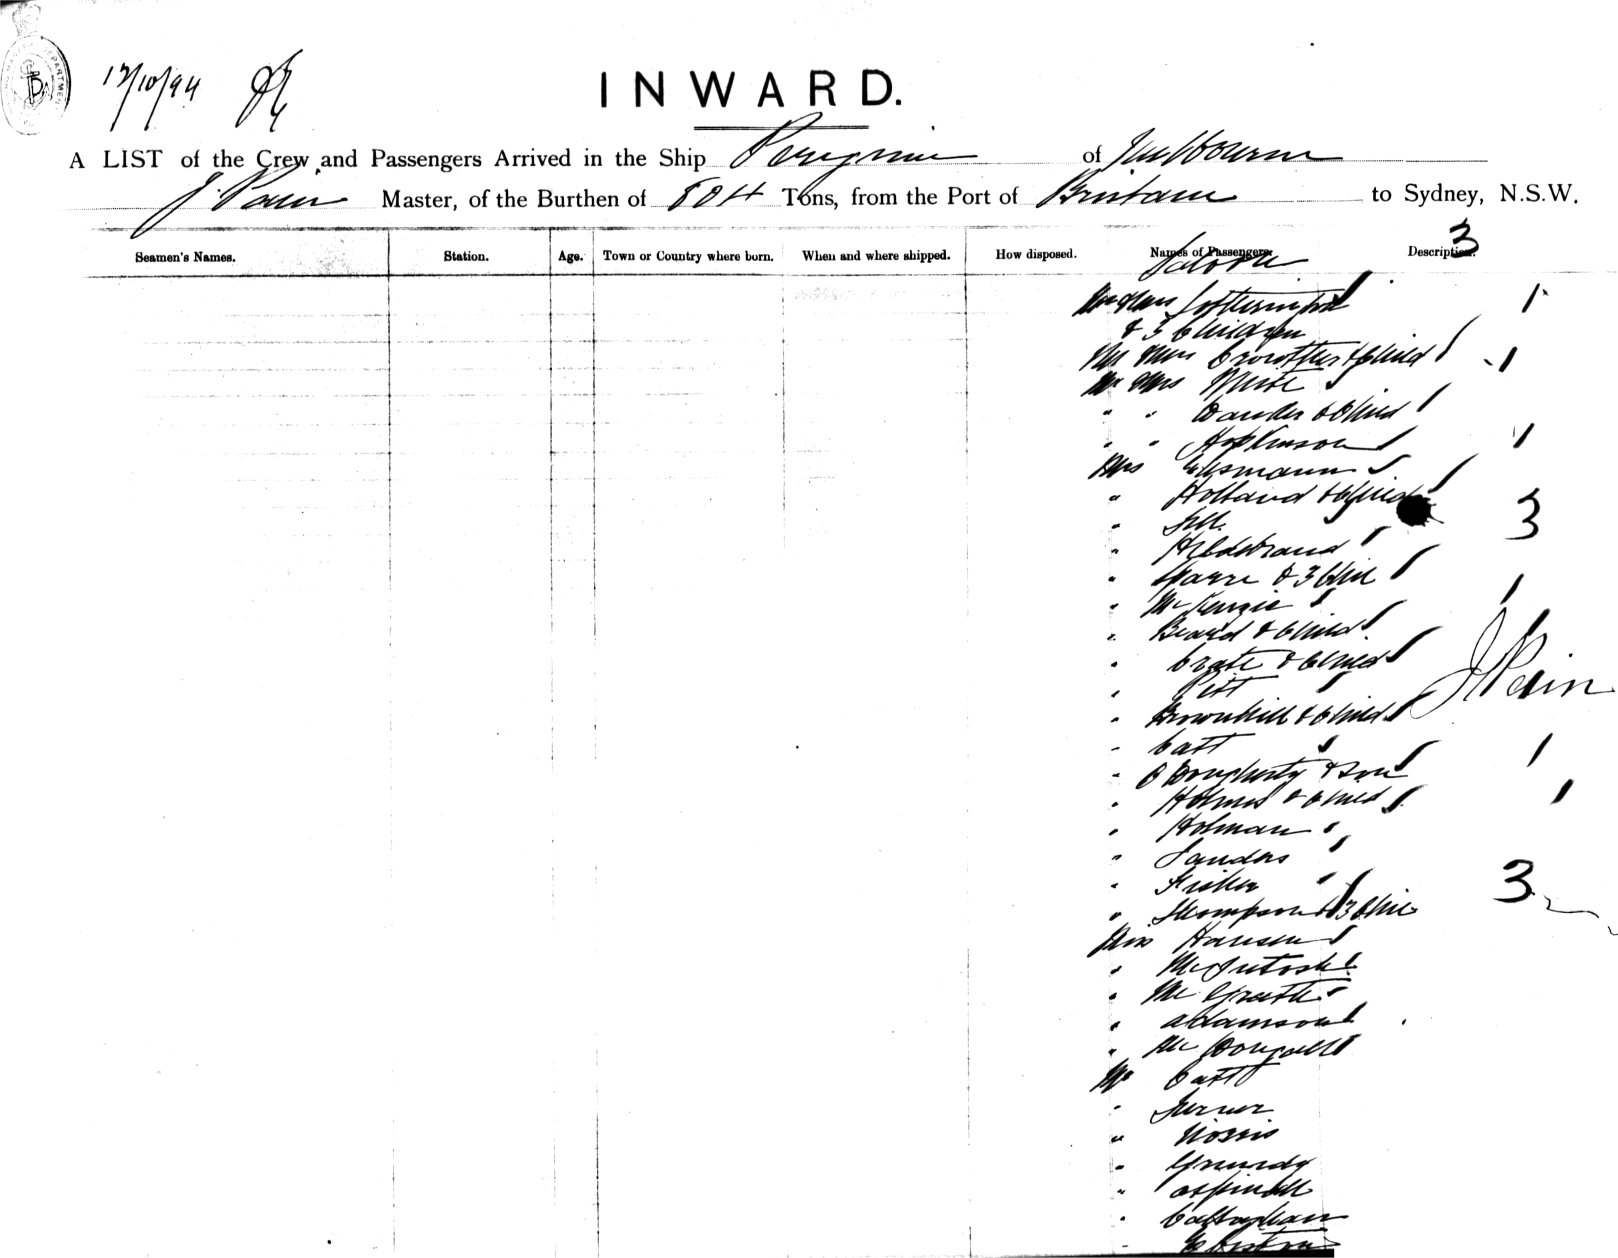 12/10/94
INWARD.
A LIST of the Crew and Passengers Arrived in the Ship Peregrine of Melbourne
J. Pain Master, of the Burthen of 804 Tons, from the Port of Brisbane to Sydney, N.S.W.
Seamen's Names. Station. Age. Town or Country where born. When and where shipped. How disposed. Names of Passengers. Description. 3
Saloon
Mr & Mrs 1
& 3 Children
Mr Mrs Crowther & Child 1
Mr Mrs
" " & Child
" " Hopkinson 1
Mrs
" Holland & Child
" 3
" Hildebrand
" & 3 Chil
" McKenzie 1
" Beard & Child
" & Child
" Pitt J Pain
" Brownhill & Child
" Catt
" O Dougherty & Son 1
" Holmes & Child 1
" Holman
" Sanders
" Fisher 3
" Thompson & 3 Chil
Miss Hansen
" McIntosh
" McGrath
" Adamson
" McDougall
Mr Catt
" Turner
" Norris
" Grundy
" Aspinall
" Callaghan
"